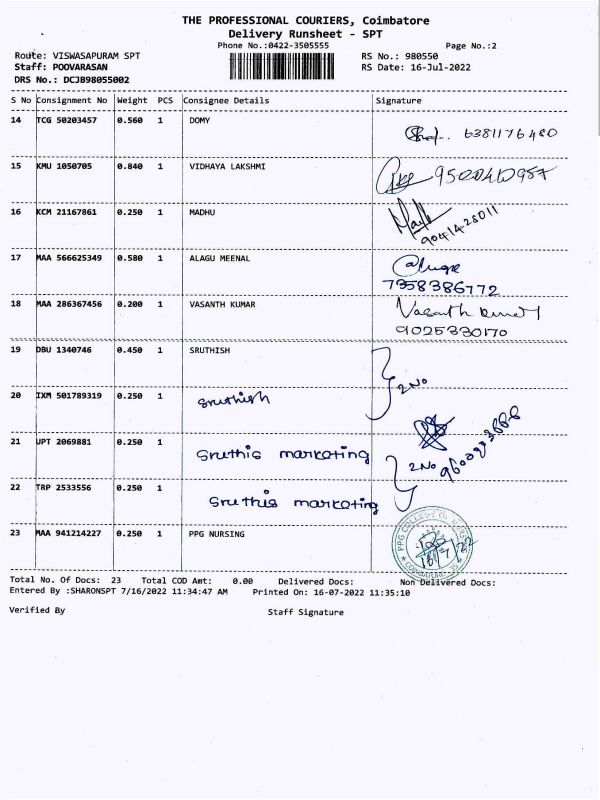 THE PROFESSIONAL COURIERS, Coimbatore
Delivery Runsheet - SPT
Phone No.:0422-3505555 Page No.:2
Route: VISWASAPURAM SPT RS No.: 980550
Staff: POOVARASAN RS Date: 16-Jul-2022
DRS No.: DCJB98055002
S No Consignment No Weight PCS Consignee Details Signature
14 TCG 50203457 0.560 1 DOMY
6381176480
15 KMU 1050705 0.840 1 VIDHAYA LAKSHMI
16 KCM 21167861 0.250 1 MADHU
9041428011
17 MAA 566625349 0.580 1 ALAGU MEENAL
7358386772
18 MAA 286367456 0.200 1 VASANTH KUMAR Vasanth kumar
9025330170
19 DBU 1340746 0.450 1 SRUTHISH
20 IXM 501789319 0.250 1 Sruthish 2 No
21 UPT 2069881 0.250 1 Sruthis marketing 2 No
22 TRP 2533556 0.250 1 Sruthis marketing
23 MAA 941214227 0.250 1 PPG NURSING PPG COLLEGE OF NURSING
16/7/22
COIMBATORE - 35
Total No. Of Docs: 23 Total COD Amt: 0.00 Delivered Docs: Non Delivered Docs:
Entered By :SHARONSPT 7/16/2022 11:34:47 AM Printed On: 16-07-2022 11:35:10
Verified By Staff Signature